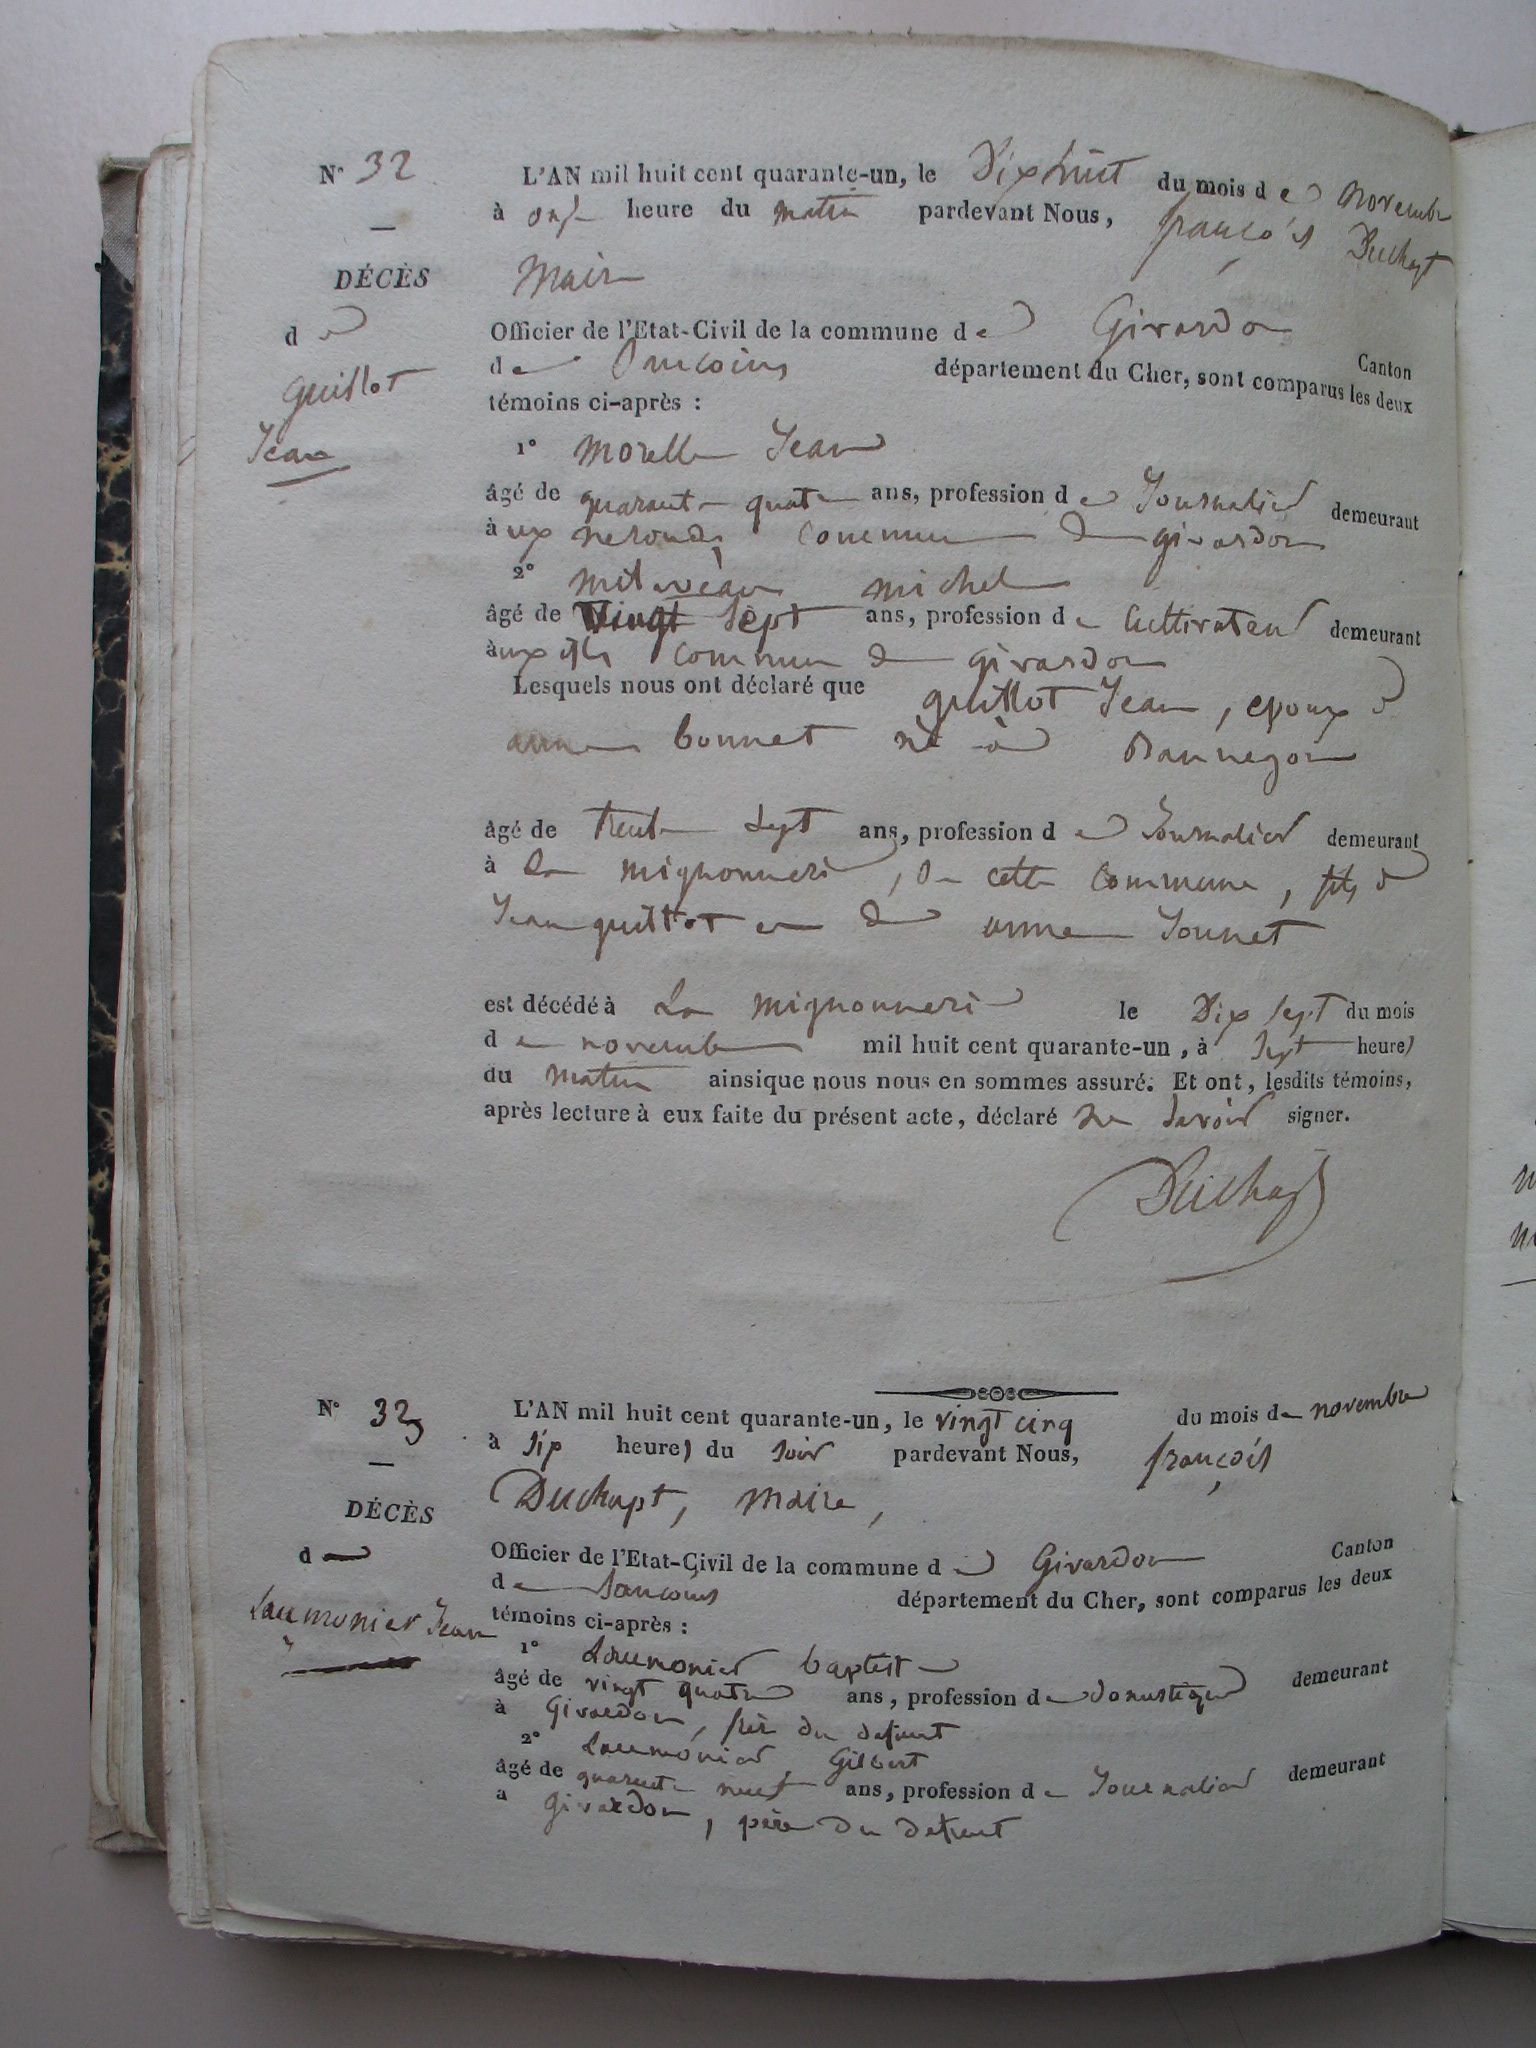 N° 32
L'AN mil huit cent quarante-un, le Dix huit du mois de novembre
à onze heure du matin pardevant Nous, françois Duchapt
DÉCÈS
Maire
de
Officier de l'Etat-Civil de la commune de Givardon
Canton
Guillot
de Sancoins département du Cher, sont comparus les deux
témoins ci-après :
Jean
1° Morelle Jean
âgé de quarante quatre ans, profession de Journalier demeurant
à ux neronds, commune de givardon
2° michel
âgé de Vingt Sept ans, profession de Cultivateur demeurant
à ux commune de givardon
Lesquels nous ont déclaré que guillot Jean, epoux de
anne bonnet né à Bannegon
âgé de trente Sept ans, profession de Journalier demeurant
à La mignonnerie, de cette commune, fils de
Jean guillot et de anne Jounet
est décédé à La mignonnerie le Dix Sept du mois
de novembre mil huit cent quarante-un, à Sept heures
du matin ainsique nous nous en sommes assuré. Et ont, lesdits témoins,
après lecture à eux faite du présent acte, déclaré ne Savoir signer.
Duchapt
N° 33
L'AN mil huit cent quarante-un, le vingt cinq du mois de novembre
à Six heures du Soir pardevant Nous, françois
Duchapt, Maire,
DÉCÈS
Officier de l'Etat-Civil de la commune de Givardon Canton
d
de Sancoins département du Cher, sont comparus les deux
Laumonier Jean
témoins ci-après :
1° Laumonier baptiste
âgé de vingt quatre ans, profession de domestique demeurant
à Givardon, frère du defunt
2° Laumonier Gilbert
âgé de quarante neuf ans, profession de Journalier demeurant
a givardon, père du defunt